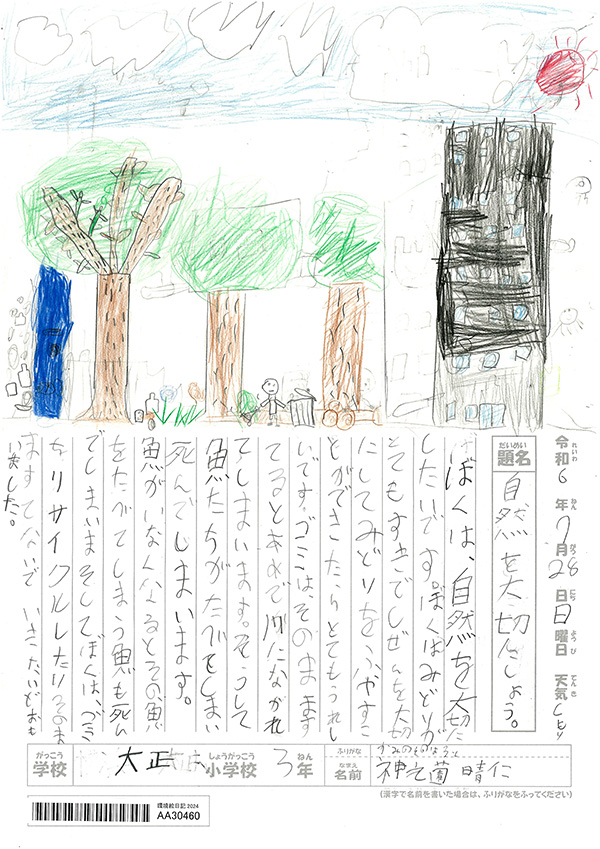 令和6年7月28日日曜日 天気 くもり
れいわ ねん がつ にち ようび てんき
だいめい
題名 自然を大切にしよう。
ぼくは、自然を大切に
したいです。ぼくはみどりが
とてもすきでしぜんを大切
にしてみどりをふやすこ
とができたらとてもうれし
いです。ゴミは、そのまます
てるとあめで川にながれ
てしまいます。そうして
魚たちがたべてしまい
死んでしまいます。
魚がいなくなるとその魚
をたべてしまう魚も死ん
でしまいまそしてぼくは、ゴミ
をリサイクルしたりそのま
ますてないでいきたいとおも
いました。
がっこう しょうがっこう ねん ふりがな
学校 大正小学校 3年 なまえ 名前 神之薗 晴仁
(漢字で名前を書いた場合は、ふりがなをふってください)
環境絵日記2024
AA30460